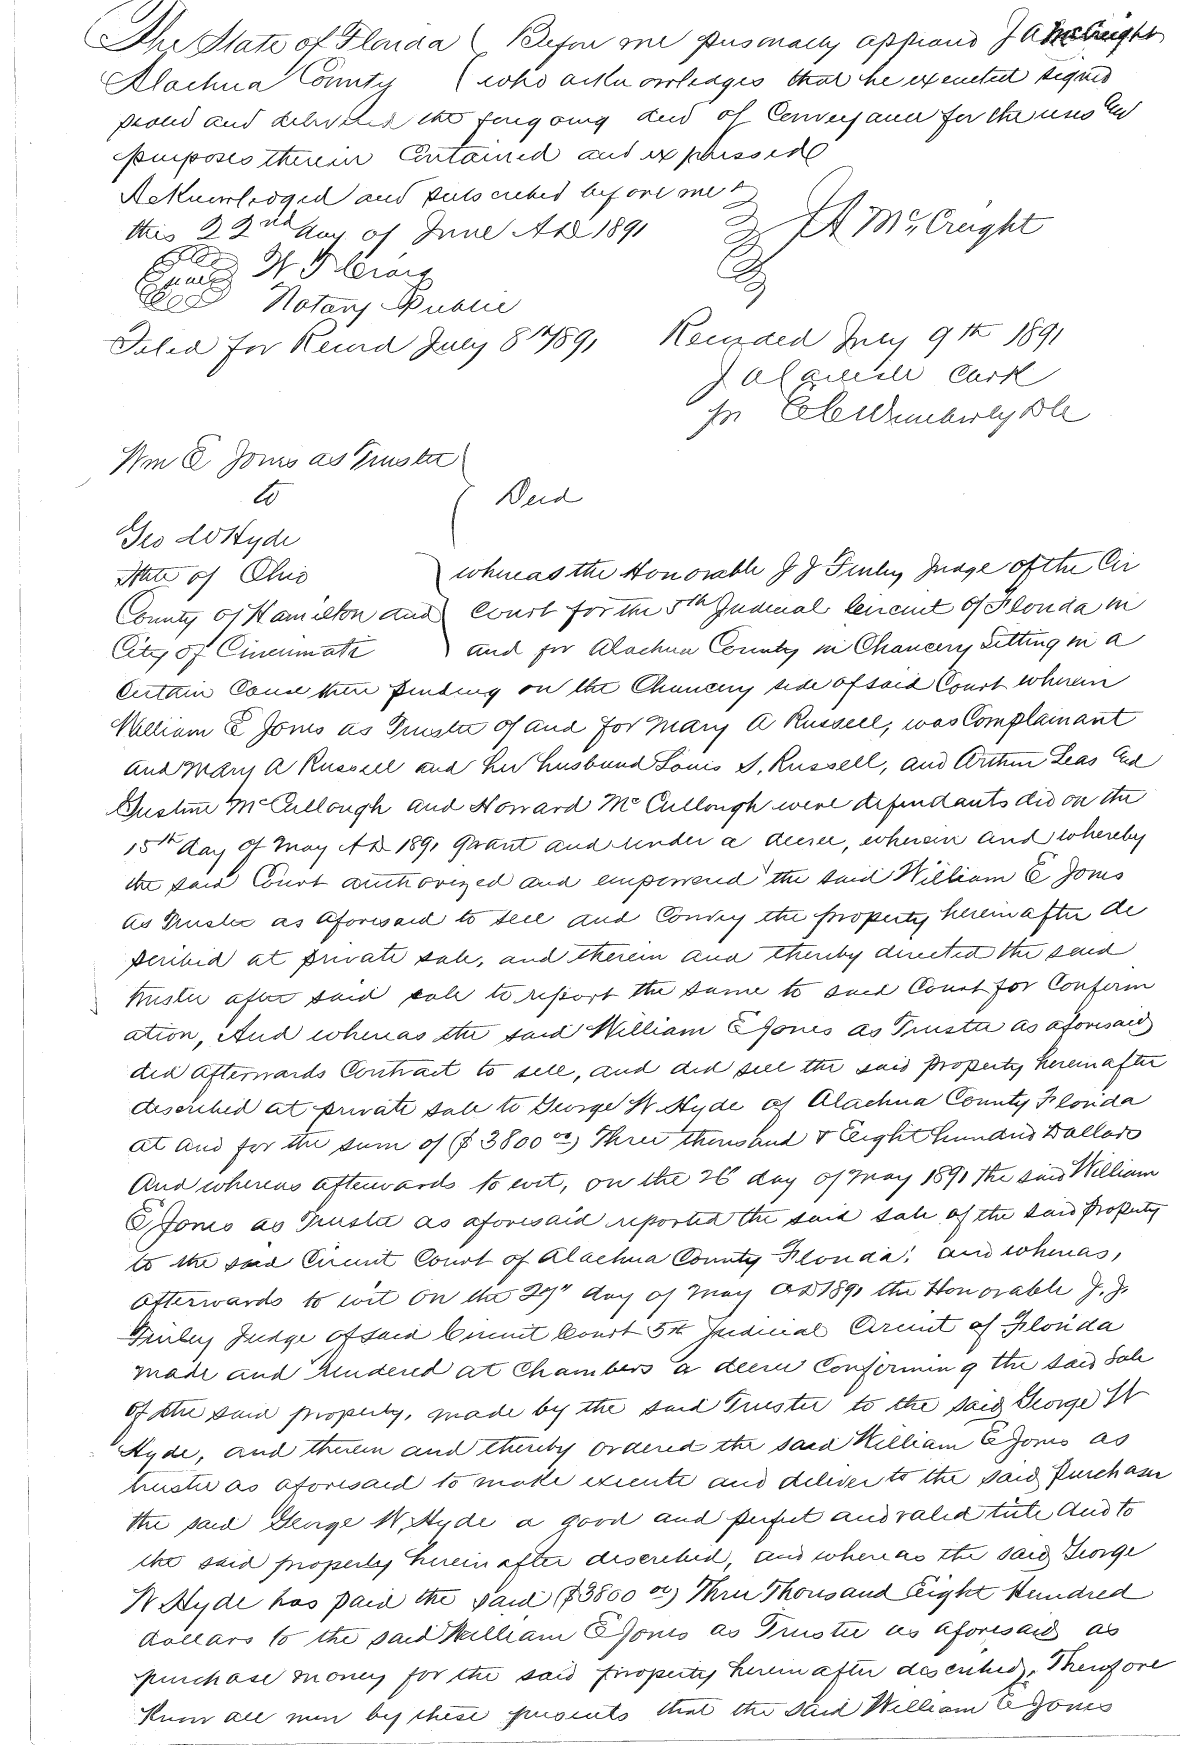 The State of Florida ( Before me personally appeared J A McCreight
Alachua County ( who acknowledges that he executed signed
sealed and delivered the foregoing deed of Conveyance for the uses and
purposes therein Contained and expressed
Acknowledged and subscribed before me
this 22nd day of June A D 1891 J A McCreight
W J Craig
Notary Public
Filed for Record July 8th 1891 Recorded July 9th 1891
J A Clerk
pr Wimberly D C
Wm E Jones as Trustee
to Deed
Geo W Hyde
State of Ohio whereas the Honorable J J Finley Judge of the Cir
County of Hamilton and Court for the 5th Judicial Circuit of Florida in
City of Cincinnati and for Alachua County in Chancery Sitting in a
Certain Cause then pending on the Chancery side of said Court wherein
William E Jones as Trustee of and for Mary A Russell, was Complainant
and Mary A Russell and her husband Louis S. Russell, and Arthur Leas and
McCullough and Howard McCullough were defendants did on the
15th day of May A D 1891 grant and under a decree, wherein and whereby
the said Court authorized and empowered the said William E Jones
as Trustee as aforesaid to sell and Convey the property hereinafter de
scribed at private sale, and therein and thereby directed the said
trustee after said sale to report the same to said Court for Confirm
ation, And whereas the said William E Jones as Trustee as aforesaid
did afterwards Contract to sell, and did sell the said property hereinafter
described at private sale to George W Hyde of Alachua County Florida
at and for the sum of ($3800 00) Three thousand & Eight hundred Dollars
And whereas afterwards to wit, on the 26 day of May 1891 the said William
E Jones as Trustee as aforesaid reported the said sale of the said property
to the said Circuit Court of Alachua County Florida; and whereas,
afterwards to wit on the 29" day of May A D 1891 the Honorable J. J.
Finley Judge of said Circuit Court 5th Judicial Circuit of Florida
made and rendered at Chambers a decree Confirming the said Sale
of the said property, made by the said Trustee to the said George W
Hyde, and therein and thereby ordered the said William E Jones as
trustee as aforesaid to make execute and deliver to the said purchaser
the said George W. Hyde a good and perfect and valid title And to
the said property hereinafter described, and whereas the said George
W Hyde has paid the said ($3800 00) Three Thousand Eight Hundred
dollars to the said William E Jones as Trustee as aforesaid as
purchase money for the said property hereinafter described, Therefore
Know all men by these presents that the said William E Jones